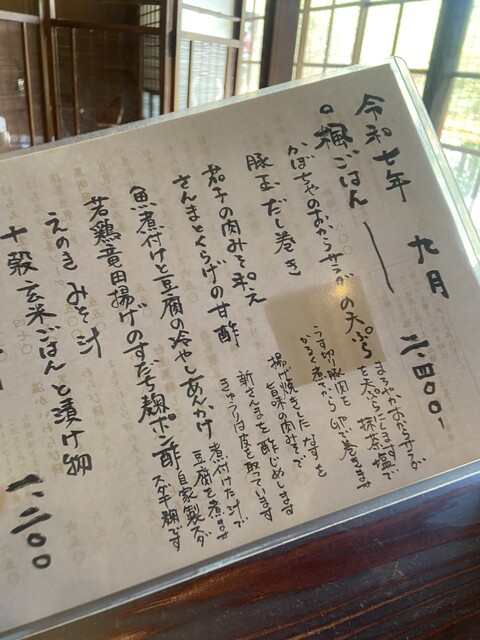 令和七年 九月
楓ごはん 二、四〇〇
かぼちゃのおからサラダの天ぷら
まろやかおからサラダ
を天ぷらにします 抹茶塩で
豚玉だし巻き
うす切り豚肉を
かるく煮てから 卵で巻きます
茄子の肉みそ和え
揚げ焼きしたなすを
旨味の肉みそで
さんまとくらげの甘酢
新さんまを酢じめします
きゅうりは皮を取っています
魚煮付けと豆腐の冷やしあんかけ
煮付けた汁で
豆腐を煮ます
若鶏竜田揚げのすだち麹ポン酢
自家製スダ
スダチ麹です
えのきみそ汁
十穀玄米ごはんと漬け物
一、二〇〇